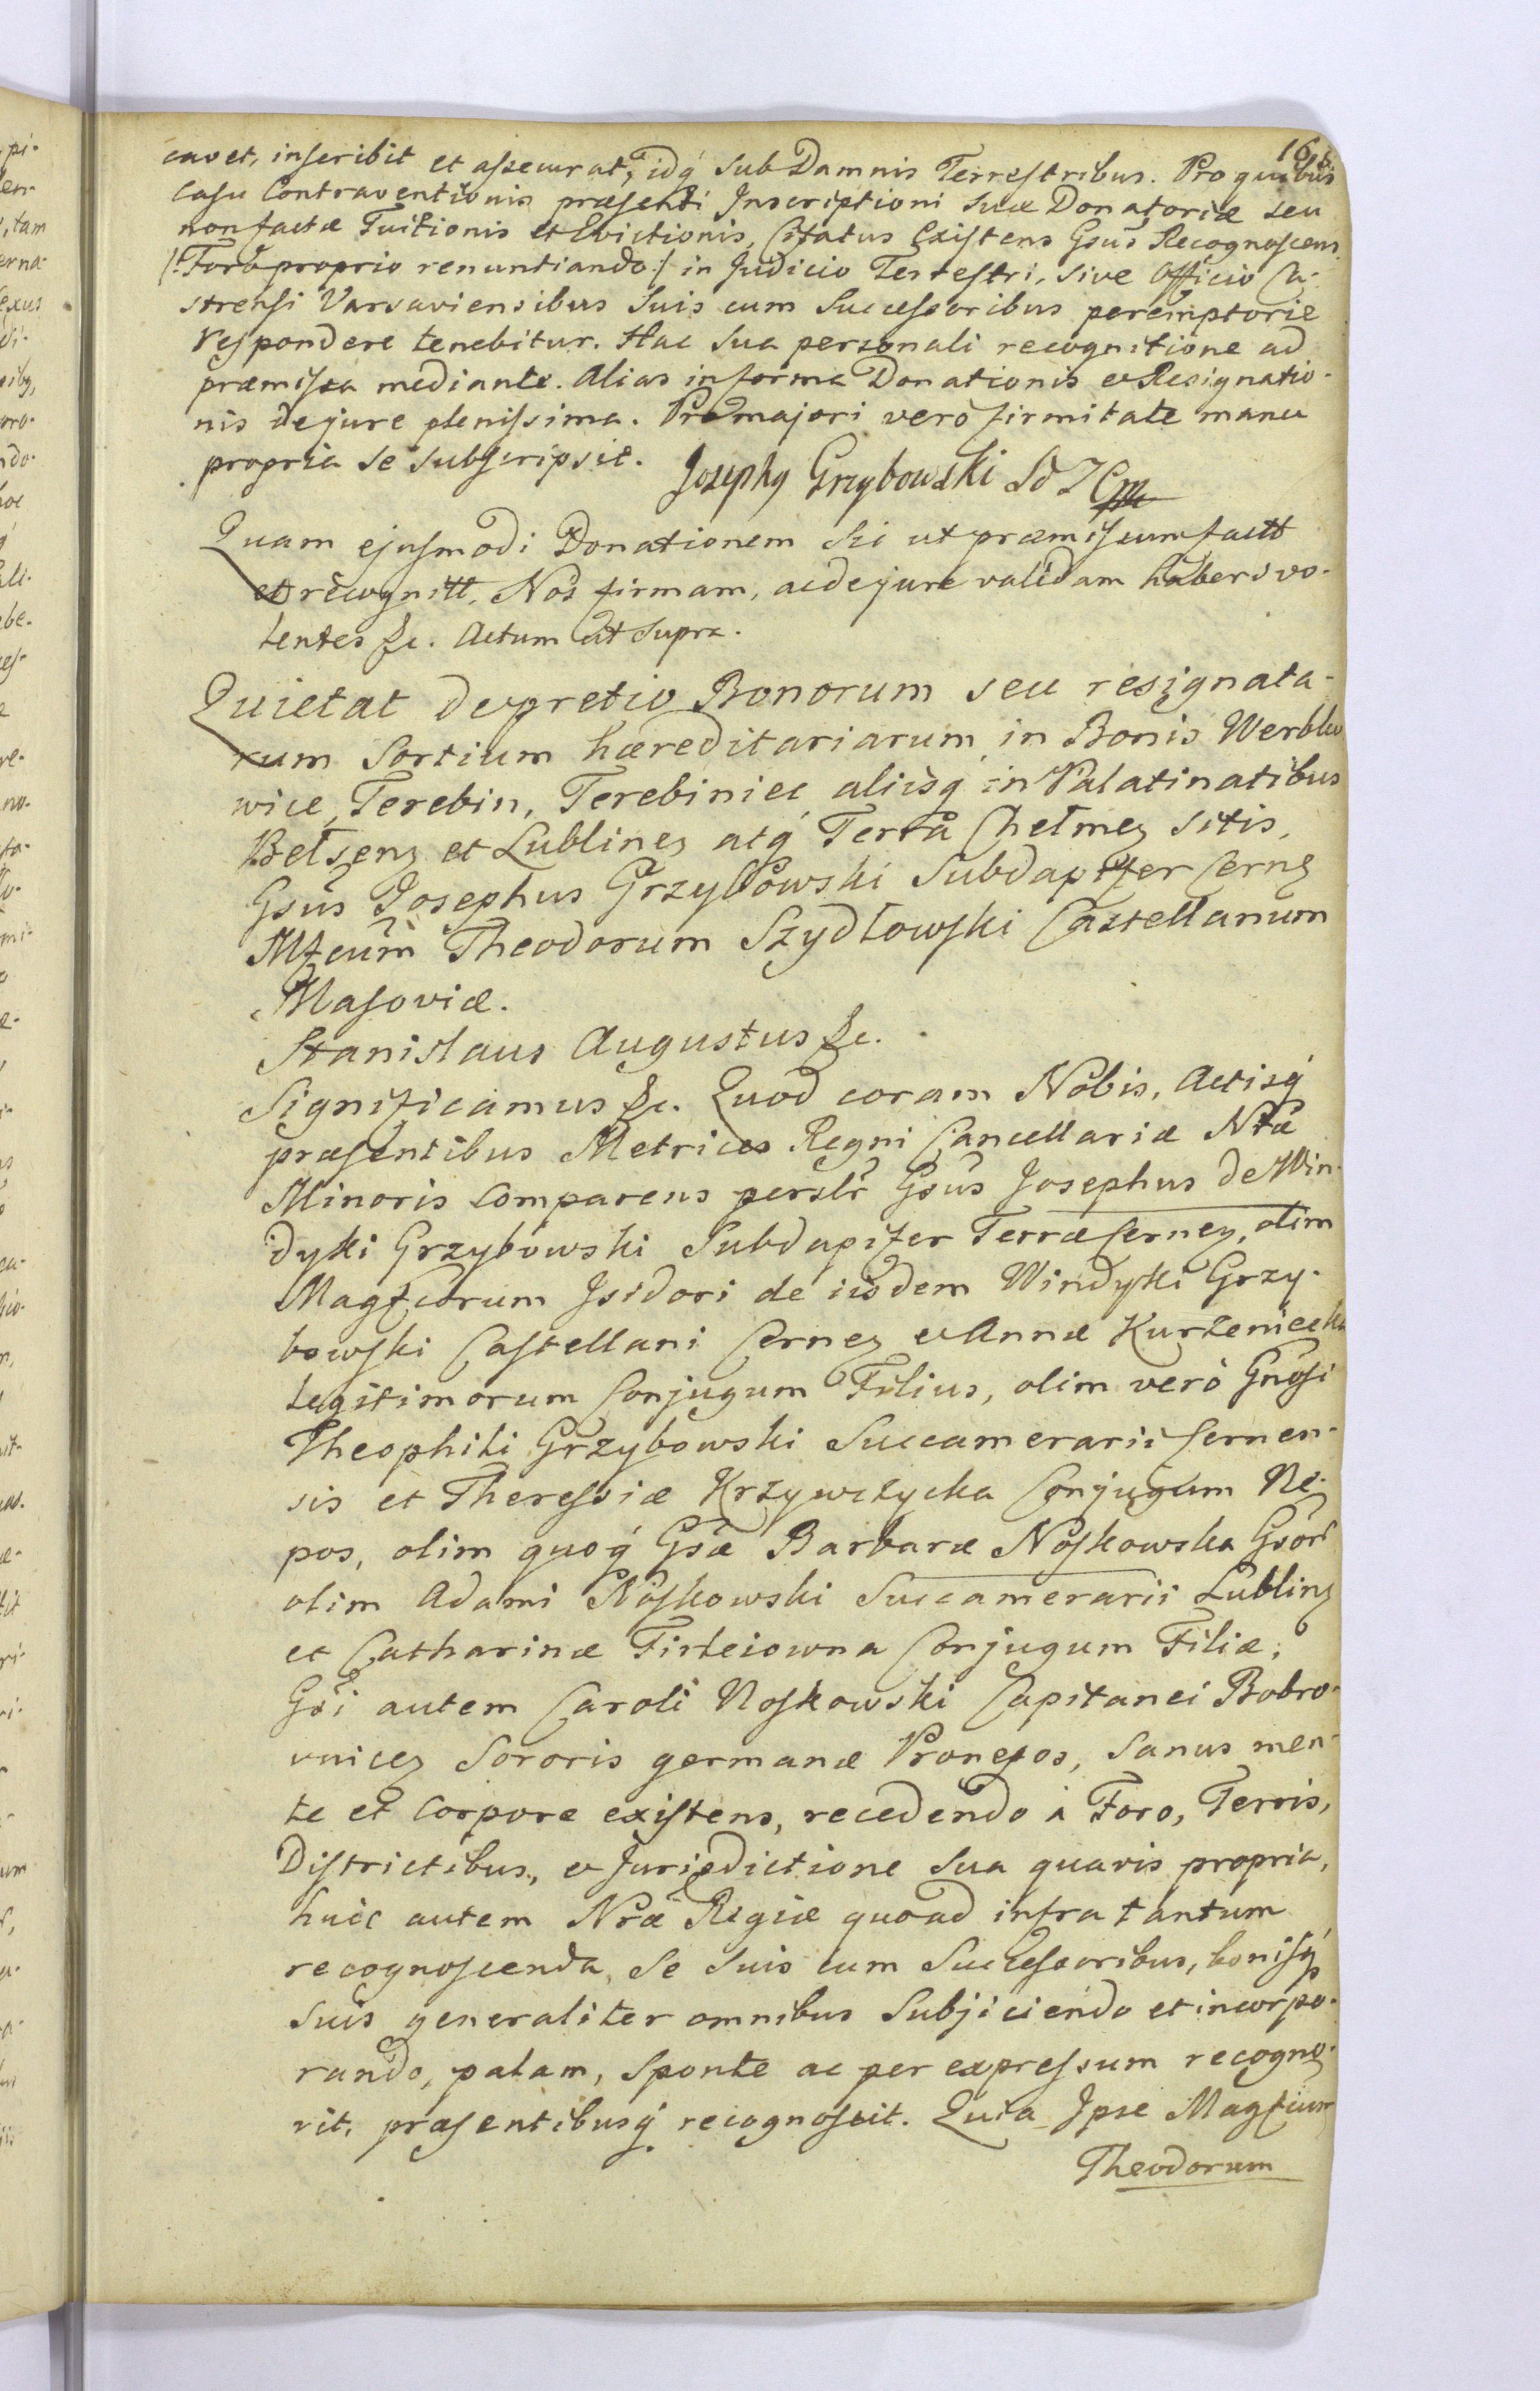 cavet, inscribit et assecurat, idq́ Sub Damnis Terrestribus. Pro quibus
Casu Contraventionis præsenti Inscriptioni Suæ Donatoriæ seu
non factæ Tuitionis et Evictionis, Citatus Existens Gsūs Recognoscens
/:Foro proprio renuntiando:/ in Judicio Terrestri, sive Officio Ca-
strensi Varsaviensibus Suis cum Successoribus peremptorie
respondere tenebitur. Hac Sua personali recognitione ad
præmissa mediante. Alias in forma Donationis et Resignatio-
nis de jure plenissima. Pro majori verò firmitate manu
propria se subscripsit. Josephq Grzybowski
Quam ejusmodi Donationem Sic ut præmissum factt
et recognitt, Nos firmam, ac de jure validam haberi vo-
lentes &c. Actum ut Supra.
Quietat de pretio Bonorum seu resignata-
rum Sortium hæreditariarum in Bonis Werbko
wice, Terebin, Terebiniec aliisq́ in Palatinatibus
Bełzenз et Lublineз atq́ Terrâ Chełmeз sitis,
Gsūs Josephus Grzybowski Subdapifer Cernз
Mfcum̄ Theodorum Szydłowski Castellanum
Masoviæ.
Stanislaus Augustus &c.
Significamus &c. Quod coram Nobis, Actisq́
præsentibus Metrices Regni Cancellariæ Nræ̃
Minoris Comparens perslr̃ Gsūs Josephus de Win-
dyki Grzybowski Subdapifer Terræ Cerneз, olim
Magfcorum Isidori de iisdem Windyki Grzy-
bowski Castellani Cerneз et Annæ Kurzeniecka
legitimorum Conjugum Filius, olim verò Gnōsi
Theophili Grzybowski Succamerarii Cernen-
sis et Theressiæ Krzywczycka Conjugum Ne-
pos, olim quoq́ Gsæ̃ Barbaræ Noskowska Gsor̃
olim Adami Noskowski Succamerarii Lublinз
et Catharinæ Firleiowna Conjugum Filiæ;
Gsi autem Caroli Noskowski Capitanei Bobro-
wniceз Sororis germanæ Pronepos, Sanus men-
te et Corpore existens, recedendo à Foro, Terris,
Districtibus, et Jurisdictione Sua quavis propria,
huic autem Nræ̃ Regiæ quoad infra tantum
recognoscenda, Se Suis cum Successoribus, bonisq́
Suis generaliter omnibus Subjiciendo et incorpo-
rando, palam, Sponte ac per expressum recogno-
vit, præsentibusq́ recognoscit. Quia Ipse Magfcum
Theodorum